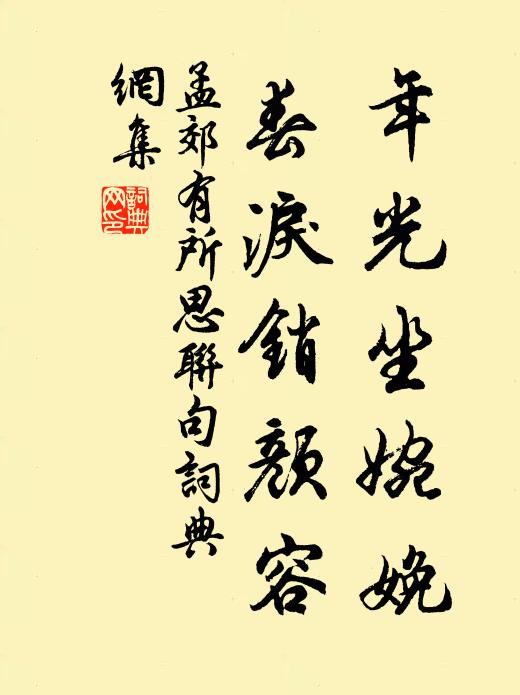 年光坐婉娩
春淚銷顏容
孟郊有所思聯句詞典
網集
詞典
网印